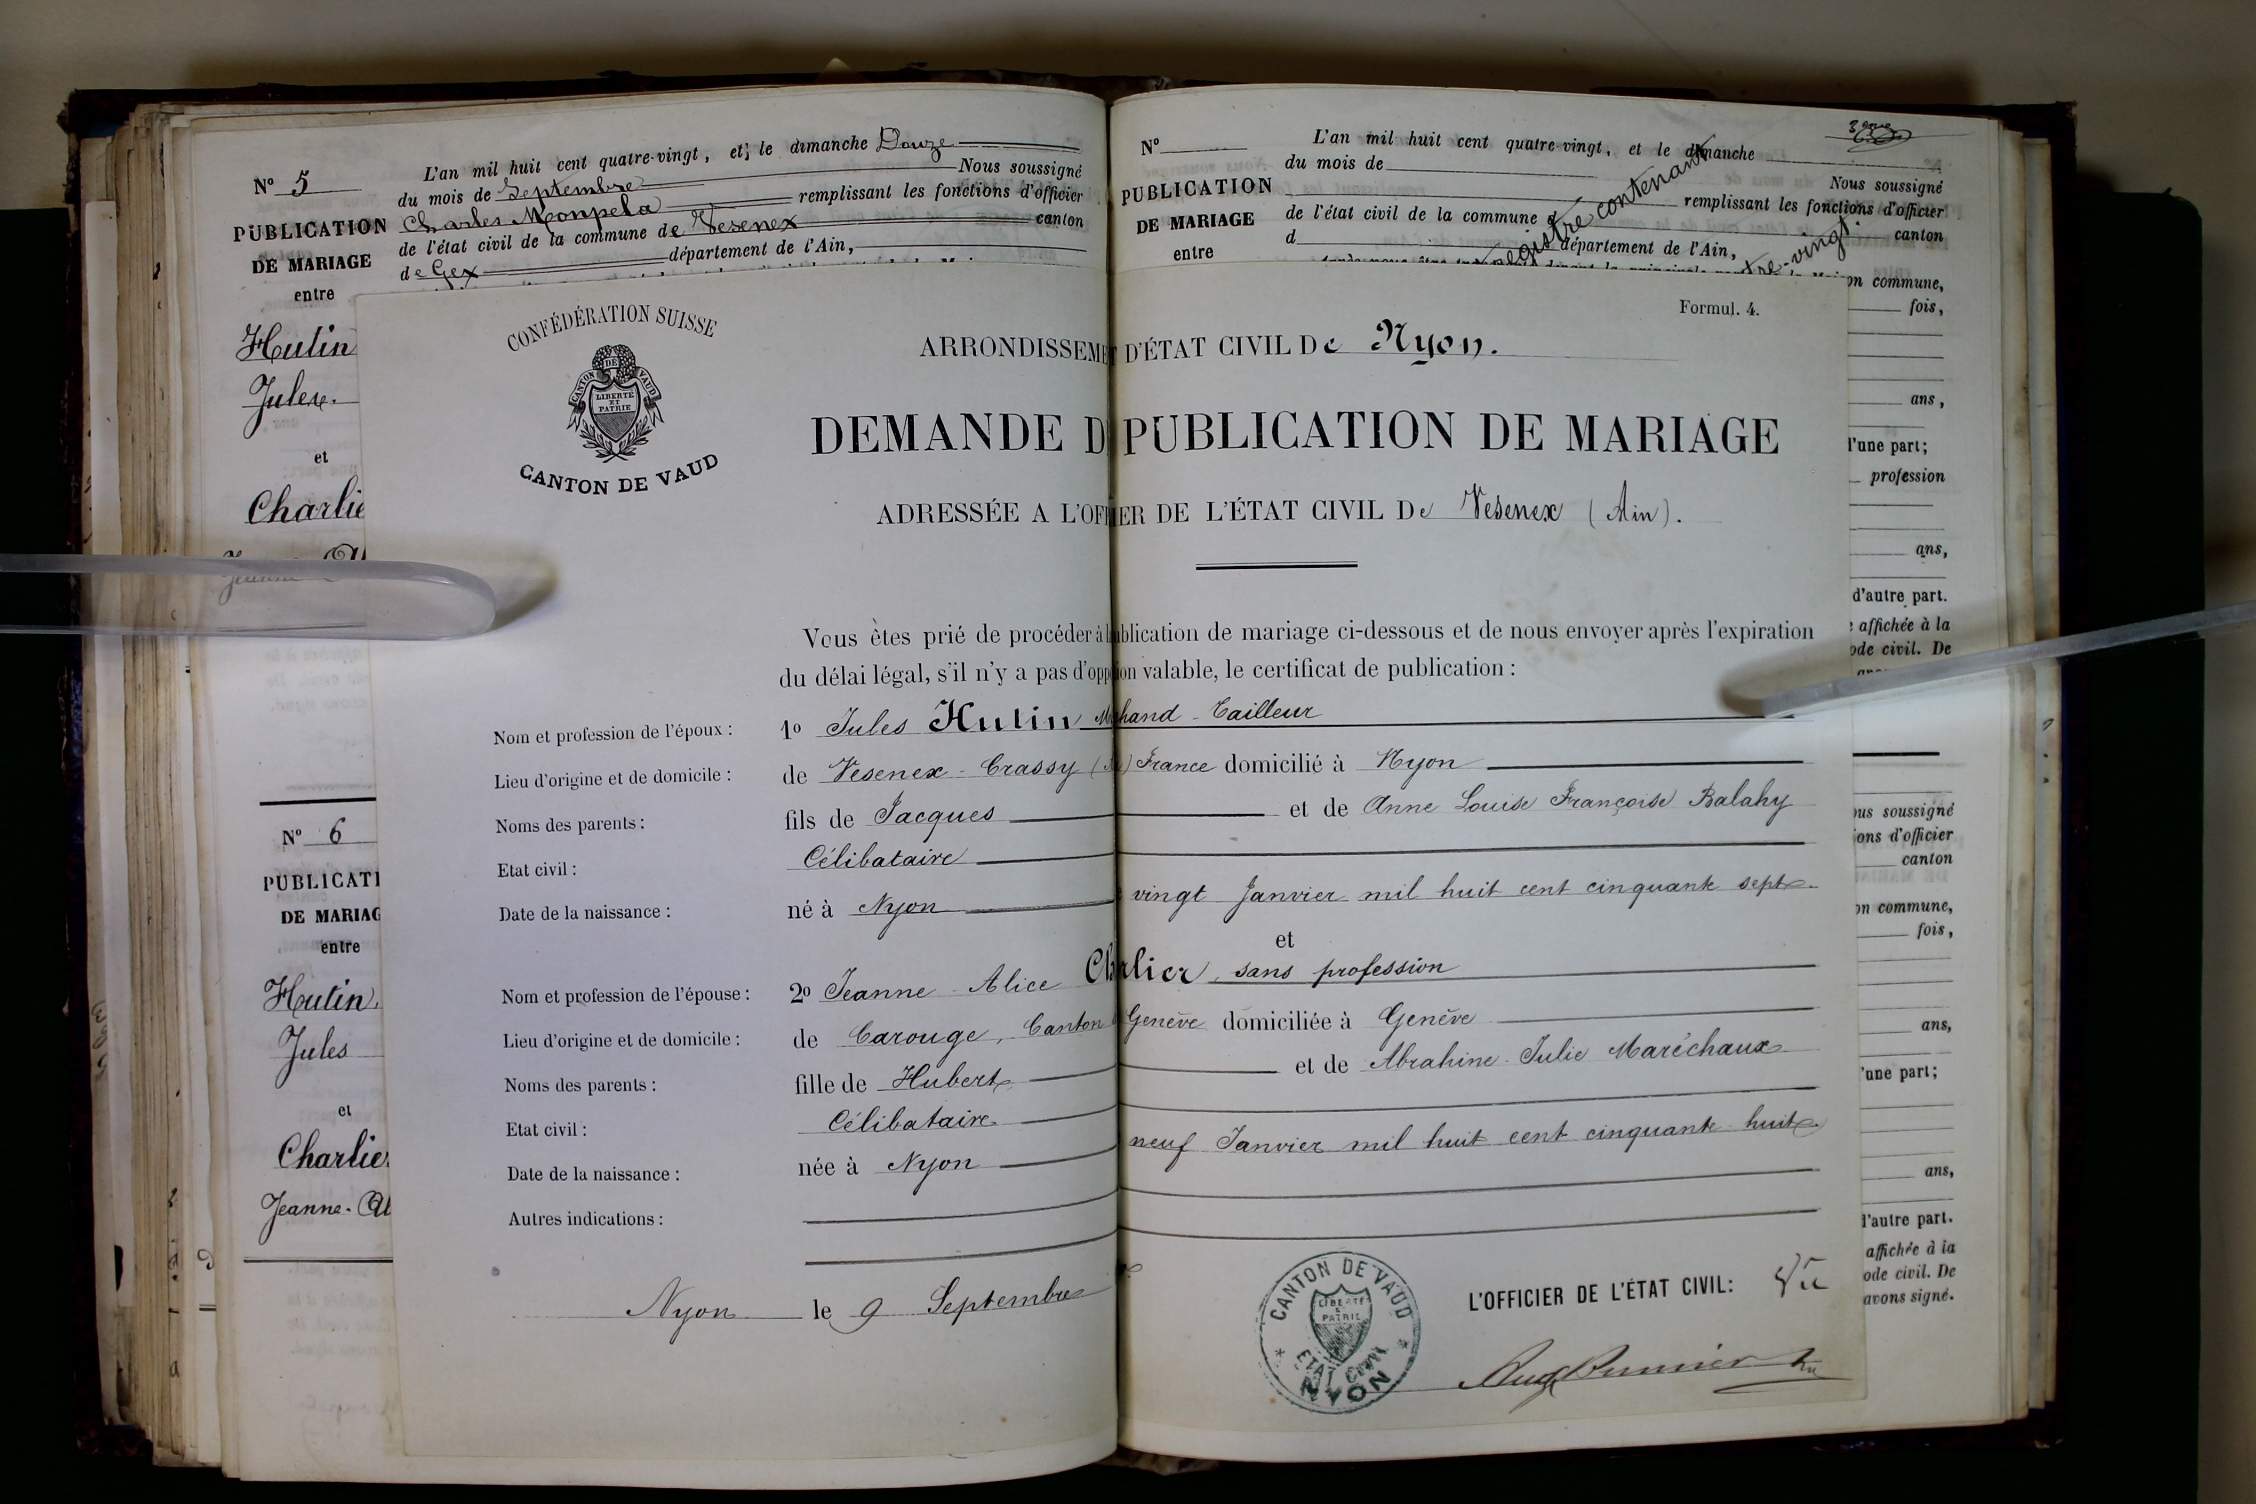 L'an mil huit cent quatre-vingt, et le dimanche Douze
du mois de Septembre Nous soussigné
Charles Monpela remplissant les fonctions d'officier
de l'état civil de la commune de Vesenex canton
de Gex département de l'Ain,
N° 5
PUBLICATION
DE MARIAGE
entre
Hutin
Jules
et
Charlie
Jeanne
N° 6
PUBLICATI
DE MARIAG
entre
Hutin
Jules
et
Charlie
Jeanne-Al
3me
N°
PUBLICATION
DE MARIAGE
entre
L'an mil huit cent quatre-vingt, et le dimanche
du mois de
Nous soussigné
remplissant les fonctions d'officier
de l'état civil de la commune d
canton
d département de l'Ain,
registre contenant
tre-vingt.
on commune,
fois,
ans,
l'une part;
profession
ans,
d'autre part.
affichée à la
ode civil. De
ous soussigné
ions d'officier
canton
on commune,
fois,
ans,
'une part;
ans,
l'autre part.
affichée à la
ode civil. De
avons signé.
CONFÉDÉRATION SUISSE
CANTON DE VAUD
LIBERTÉ
ET
PATRIE
CANTON DE VAUD
Formul. 4.
ARRONDISSEME D'ÉTAT CIVIL De Nyon.
DEMANDE D PUBLICATION DE MARIAGE
ADRESSÉE A L'OF ER DE L'ÉTAT CIVIL De Vesenex (Ain).
Vous êtes prié de procéder à l ublication de mariage ci-dessous et de nous envoyer après l'expiration
du délai légal, s'il n'y a pas d'opp ion valable, le certificat de publication :
Nom et profession de l'époux : 1º Jules Hutin M hand-Tailleur
Lieu d'origine et de domicile : de Vesenex-Crassy ( ) France domicilié à Nyon
Noms des parents : fils de Jacques et de Anne Louise Françoise Balahy
Etat civil : Célibataire
Date de la naissance : né à Nyon vingt Janvier mil huit cent cinquante sept
et
Nom et profession de l'épouse : 2º Jeanne-Alice Ch rlier, sans profession
Lieu d'origine et de domicile : de Carouge, Canton Genève domiciliée à Genève
Noms des parents : fille de Hubert et de Abrahine-Julie Maréchaux
Etat civil : Célibataire
Date de la naissance : née à Nyon neuf Janvier mil huit cent cinquante huit
Autres indications :
Nyon le 9 Septembre
CANTON DE VAUD
LIBERTÉ
ET
PATRIE
ETAT CIVIL
NYON
L'OFFICIER DE L'ÉTAT CIVIL: